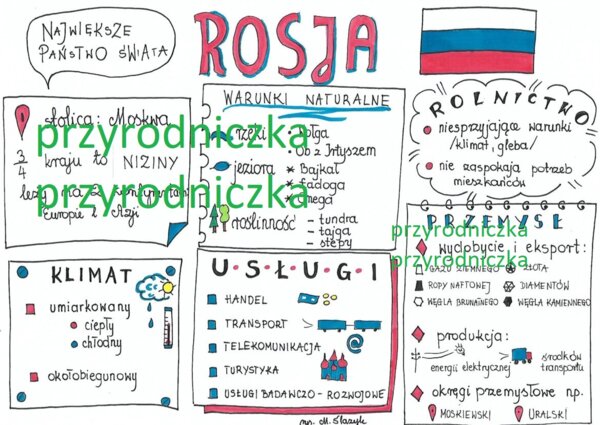 NAJWIĘKSZE
PAŃSTWO ŚWIATA
ROSJA
stolica: Moskwa
3/4 kraju to NIZINY
leży na 2 kontynentach
Europie i Azji
WARUNKI NATURALNE
rzeki
Wołga
Ob z Irtyszem
jeziora
Bajkał
Ładoga
Onega
roślinność
- tundra
- tajga
- stepy
ROLNICTWO
niesprzyjające warunki
/klimat, gleba/
nie zaspokaja potrzeb
mieszkańców
KLIMAT
umiarkowany
ciepły
chłodny
okołobiegunowy
USŁUGI
HANDEL
TRANSPORT
TELEKOMUNIKACJA
TURYSTYKA
USŁUGI BADAWCZO - ROZWOJOWE
PRZEMYSŁ
wydobycie i eksport:
GAZU ZIEMNEGO
ZŁOTA
ROPY NAFTOWEJ
DIAMENTÓW
WĘGLA BRUNATNEGO
WĘGLA KAMIENNEGO
produkcja:
energii elektrycznej
środków
transportu
okręgi przemysłowe np.
MOSKIEWSKI
URALSKI
przyrodniczka
przyrodniczka
przyrodniczka
przyrodniczka